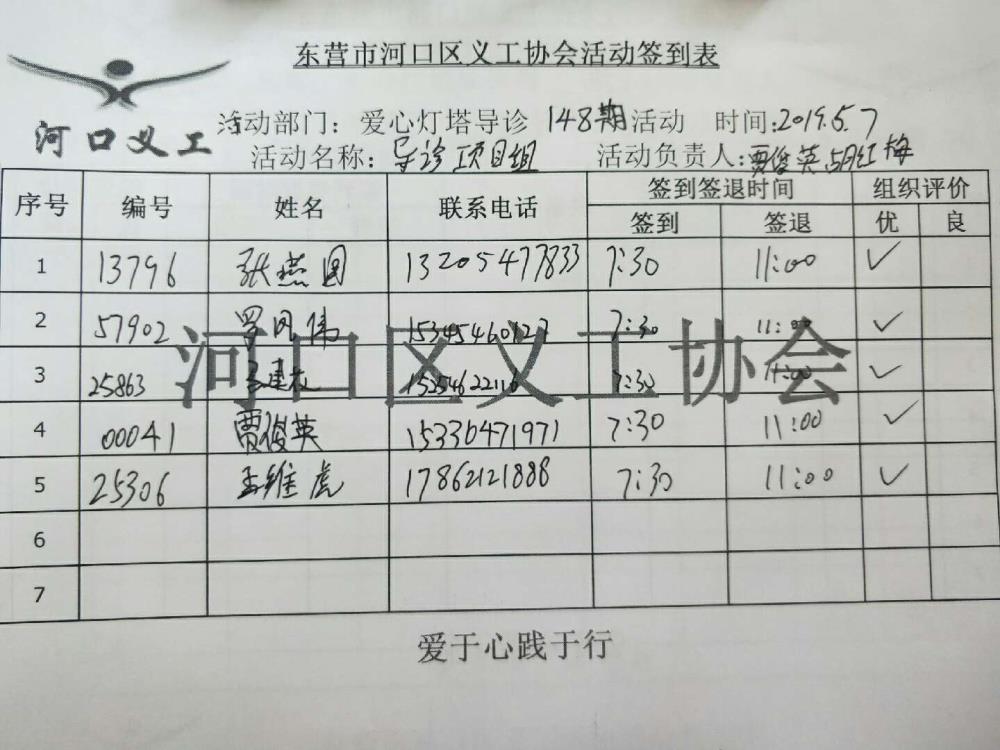 东营市河口区义工协会活动签到表
河口义工
活动部门：爱心灯塔导诊 148期活动 时间:2019.5.7
活动名称：导诊项目组 活动负责人:贾俊英 胡红梅
序号 编号 姓名 联系电话 签到签退时间 组织评价
签到 签退 优 良
1 13796 张燕 13205477833 7:30 11:00 ✓
2 57902 罗 伟 7:30 11:00 ✓
3 25863 7:30 11:00 ✓
4 00041 贾俊英 15336471971 7:30 11:00 ✓
5 25306 王维虎 17862121888 7:30 11:00 ✓
6
7
河口区义工协会
爱于心践于行